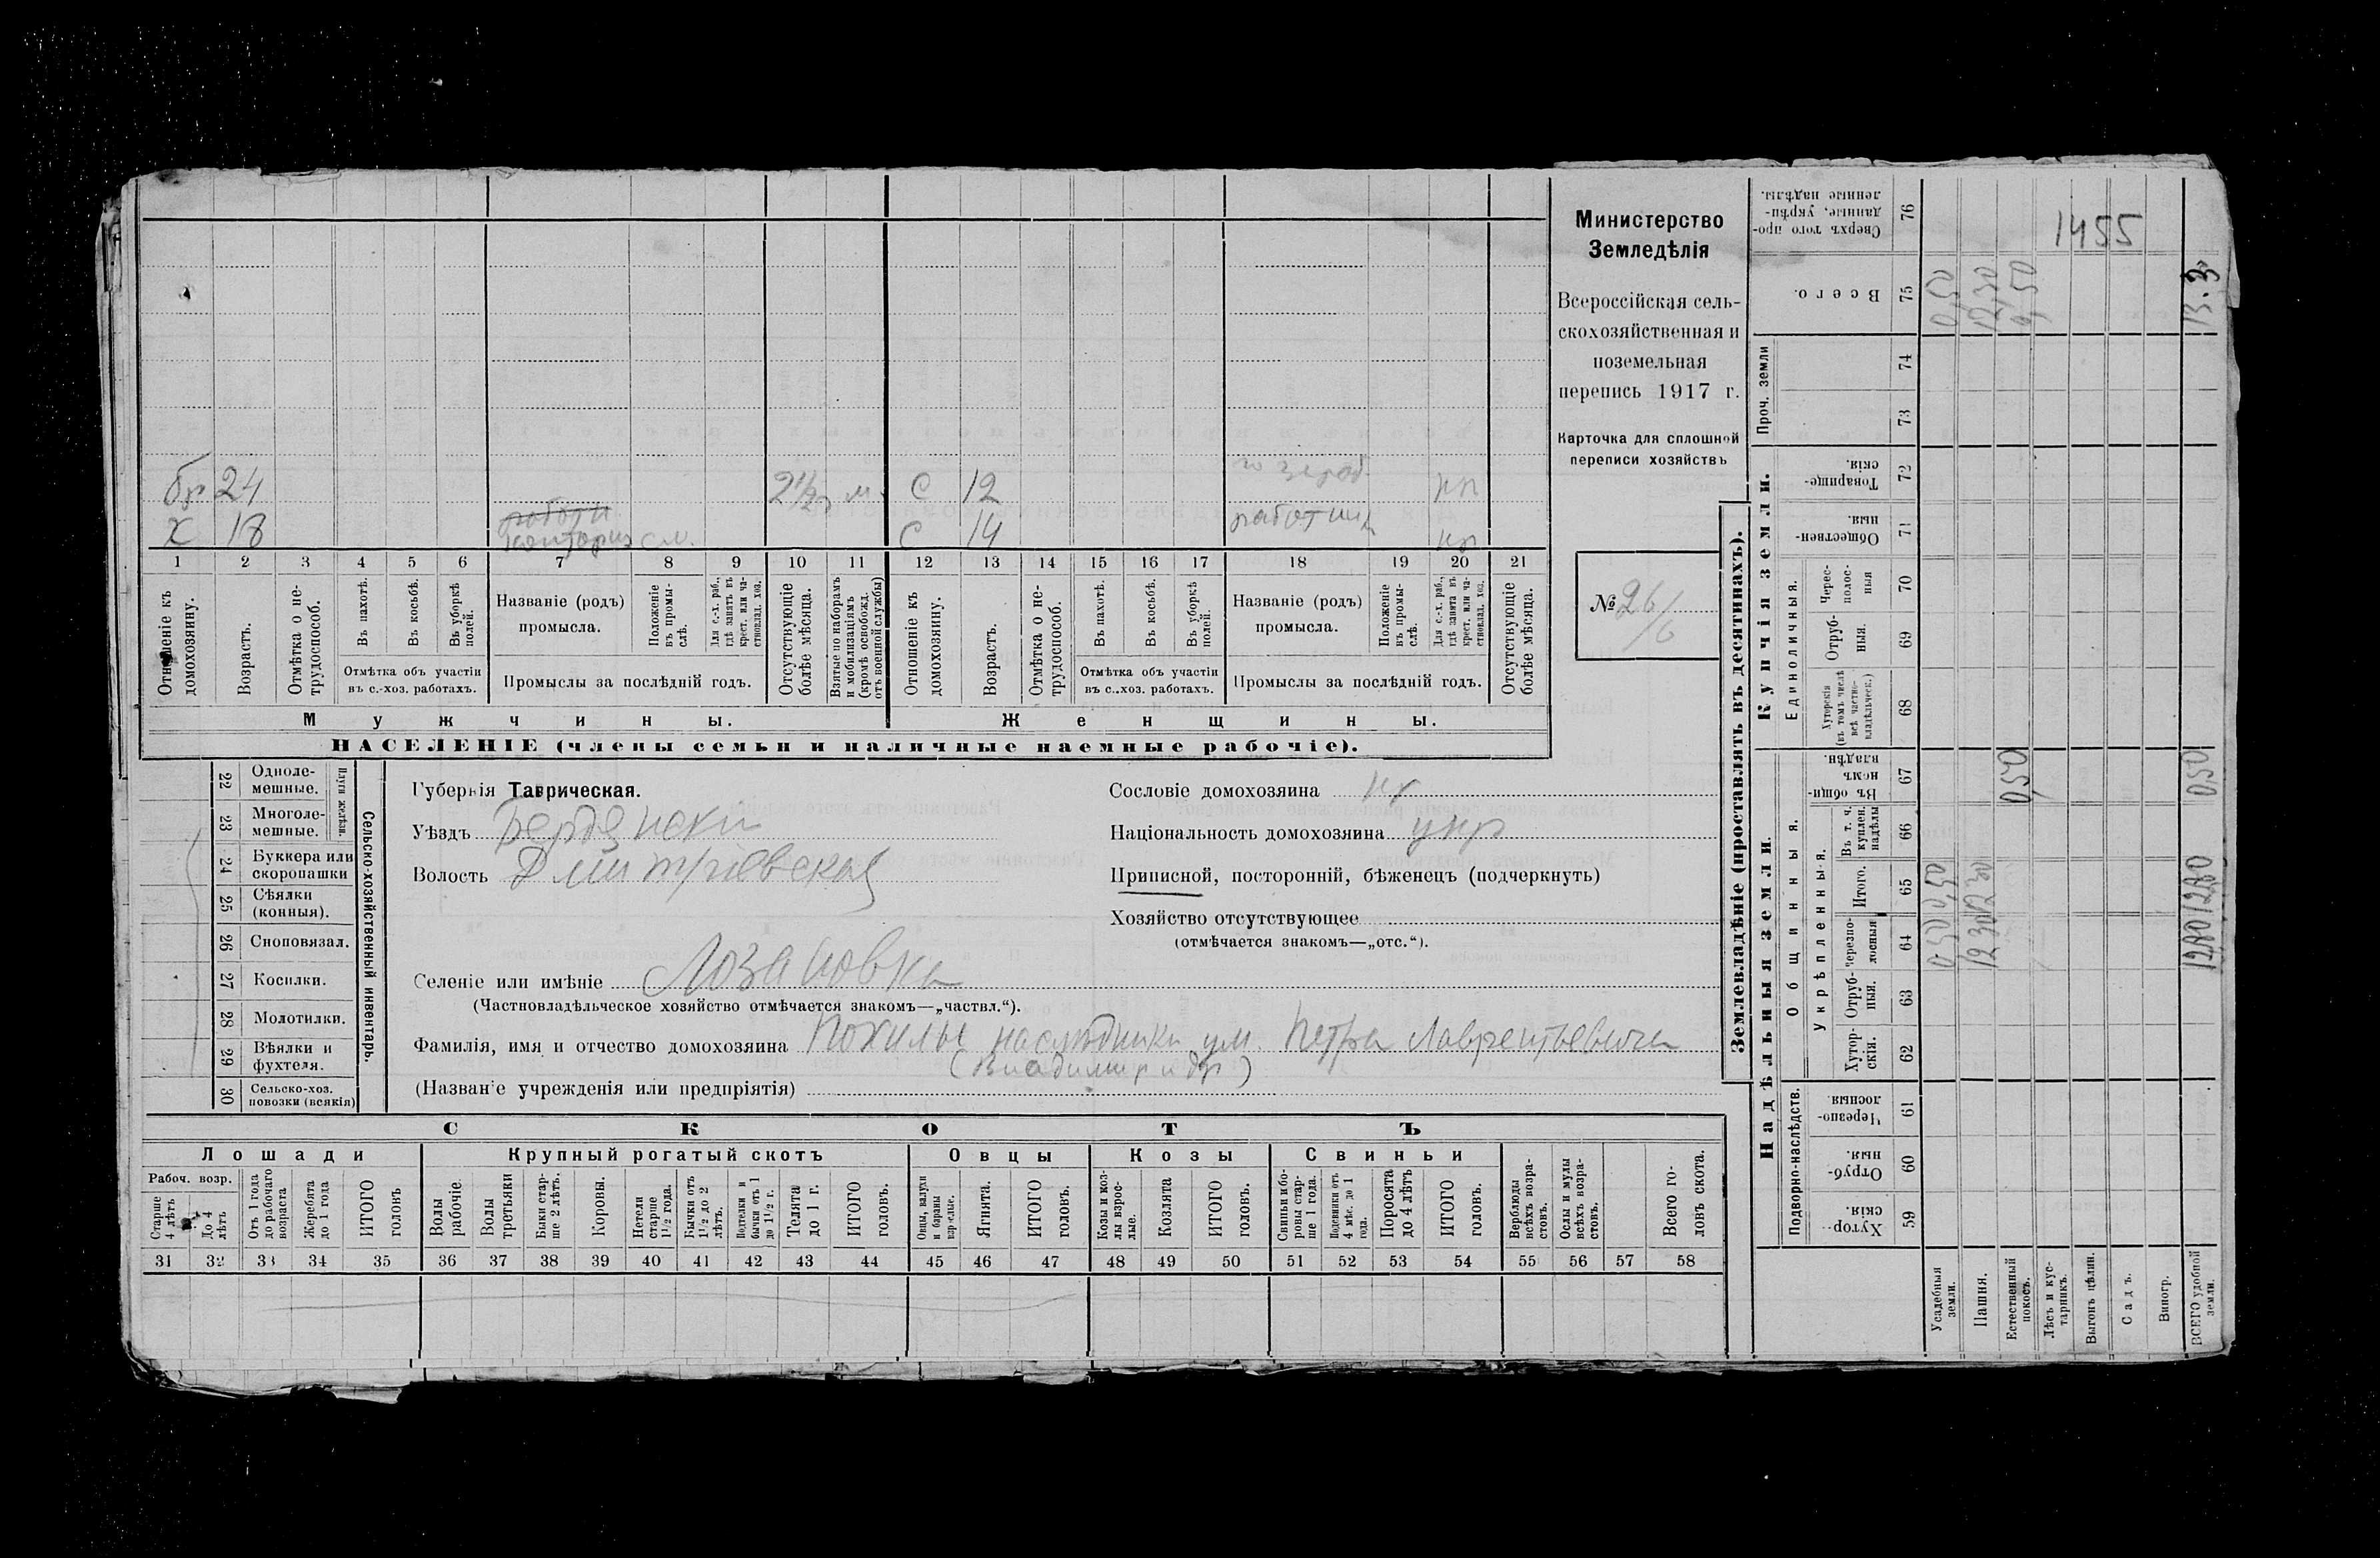 Министерство
Земледѣлія
Всероссійская сель-
скохозяйственная и
поземельная
перепись 1917 г.
Карточка для сплошной
переписи хозяйствъ
№ 26/6
бр 24 2 1/2 м. С 12 кр
Х 18 конторщ сл. С 14 работниц кр
1 2 3 4 5 6 7 8 9 10 11 12 13 14 15 16 17 18 19 20 21
Отношеніе къ домохозяину.
Возрастъ.
Отмѣтка о не-трудоспособ.
Въ пахотѣ.
Въ косьбѣ.
Въ уборкѣ полей.
Отмѣтка объ участіи
въ с.-хоз. работахъ.
Названіе (родъ)
промысла.
Положеніе въ промы-слѣ.
Для с.-х. раб., гдѣ занятъ въ крест. или ча-стновлад. хоз.
Промыслы за послѣдній годъ.
Отсутствующіе болѣе мѣсяца.
Взятые по наборамъ и мобилизаціямъ (кромѣ освобожд. отъ военной службы)
Отношеніе къ домохозяину.
Возрастъ.
Отмѣтка о не-трудоспособ.
Въ пахотѣ.
Въ косьбѣ.
Въ уборкѣ полей.
Отмѣтка объ участіи
въ с.-хоз. работахъ.
Названіе (родъ)
промысла.
Положеніе въ промы-слѣ.
Для с.-х. раб., гдѣ занята въ крест. или ча-стновлад. хоз.
Промыслы за послѣдній годъ.
Отсутствующіе болѣе мѣсяца.
Мужчины. Женщины.
НАСЕЛЕНІЕ (члены семьи и наличные наемные рабочіе).
Сельско-хозяйственный инвентарь.
Плуги желѣзн.
22 Одноле-мешные.
23 Многоле-мешные.
24 Буккера или скоропашки
25 Сѣялки (конныя).
26 Сноповязал.
27 Косилки.
28 Молотилки.
29 Вѣялки и фухтеля.
30 Сельско-хоз. повозки (всякія)
Губернія Таврическая.
Уѣздъ Бердянский
Волость Дмитріевская
Селеніе или имѣніе Лозановка
(Частновладѣльческое хозяйство отмѣчается знакомъ—„частвл.“).
Фамилія, имя и отчество домохозяина Похилы наслѣдники ум. Петра Лаврентьевича
(Владимир и др)
(Названіе учрежденія или предпріятія)
Сословіе домохозяина кр
Національность домохозяина укр
Приписной, посторонній, бѣженецъ (подчеркнуть)
Хозяйство отсутствующее
(отмѣчается знакомъ—„отс.“).
СКОТЪ
Лошади Крупный рогатый скотъ Овцы Козы Свиньи
Рабоч. возр.
Старше 4 лѣтъ
До 4 лѣтъ
Отъ 1 года до рабочаго возраста
Жеребята до 1 года
ИТОГО головъ
Волы рабочіе.
Волы третьяки
Быки стар-ше 2 лѣтъ.
Коровы.
Нетели старше 1 1/2 года.
Бычки отъ 1 1/2 до 2 лѣтъ.
Подтелки и бычки отъ 1 до 1 1/2 г.
Телята до 1 г.
ИТОГО головъ.
Овцы, валухи и бараны взрослые.
Ягнята.
ИТОГО головъ.
Козы и коз-лы взрос-лые.
Козлята
ИТОГО головъ.
Свиньи и бо-ровы стар-ше 1 года.
Подсвинки отъ 4 мѣс. до 1 года.
Поросята до 4 лѣтъ
ИТОГО головъ.
Верблюды всѣхъ возра-стовъ.
Ослы и мулы всѣхъ возра-стовъ.
Всего го-ловъ скота.
31 32 33 34 35 36 37 38 39 40 41 42 43 44 45 46 47 48 49 50 51 52 53 54 55 56 57 58
Землевладѣніе (проставлять въ десятинахъ).
Надѣльныя земли.
Купчія земли.
Проч. земли
Подворно-наслѣдств.
Общинныя.
Укрѣпленныя.
Единоличныя.
Сверхъ того про-данные, укрѣп-ленные надѣлы. 76
Всего. 75
74
73
Товарище-скія. 72
Обществен-ныя. 71
Черес-полос-ныя 70
Отруб-ныя. 69
Хуторскія (въ томъ числѣ всѣ частно-владѣльческ.) 68
Въ общи-номъ владѣн. 67
Въ т. ч. куплен. надѣлы 66
Итого. 65
Черезпо-лосныя 64
Отруб-ныя. 63
Хутор-скія. 62
Черезпо-лосныя 61
Отруб-ныя. 60
Хутор-скія. 59
Усадебныя земли.
Пашня.
Естественный покосъ.
Лѣсъ и кус-тарникъ.
Выгонъ цѣлин.
Садъ.
Виногр.
ВСЕГО удобной земли.
1455
0,50 0,50 0,50
12 30 12 30 12,30
0,50 0,50
12,80 12,80 0,50 13.3